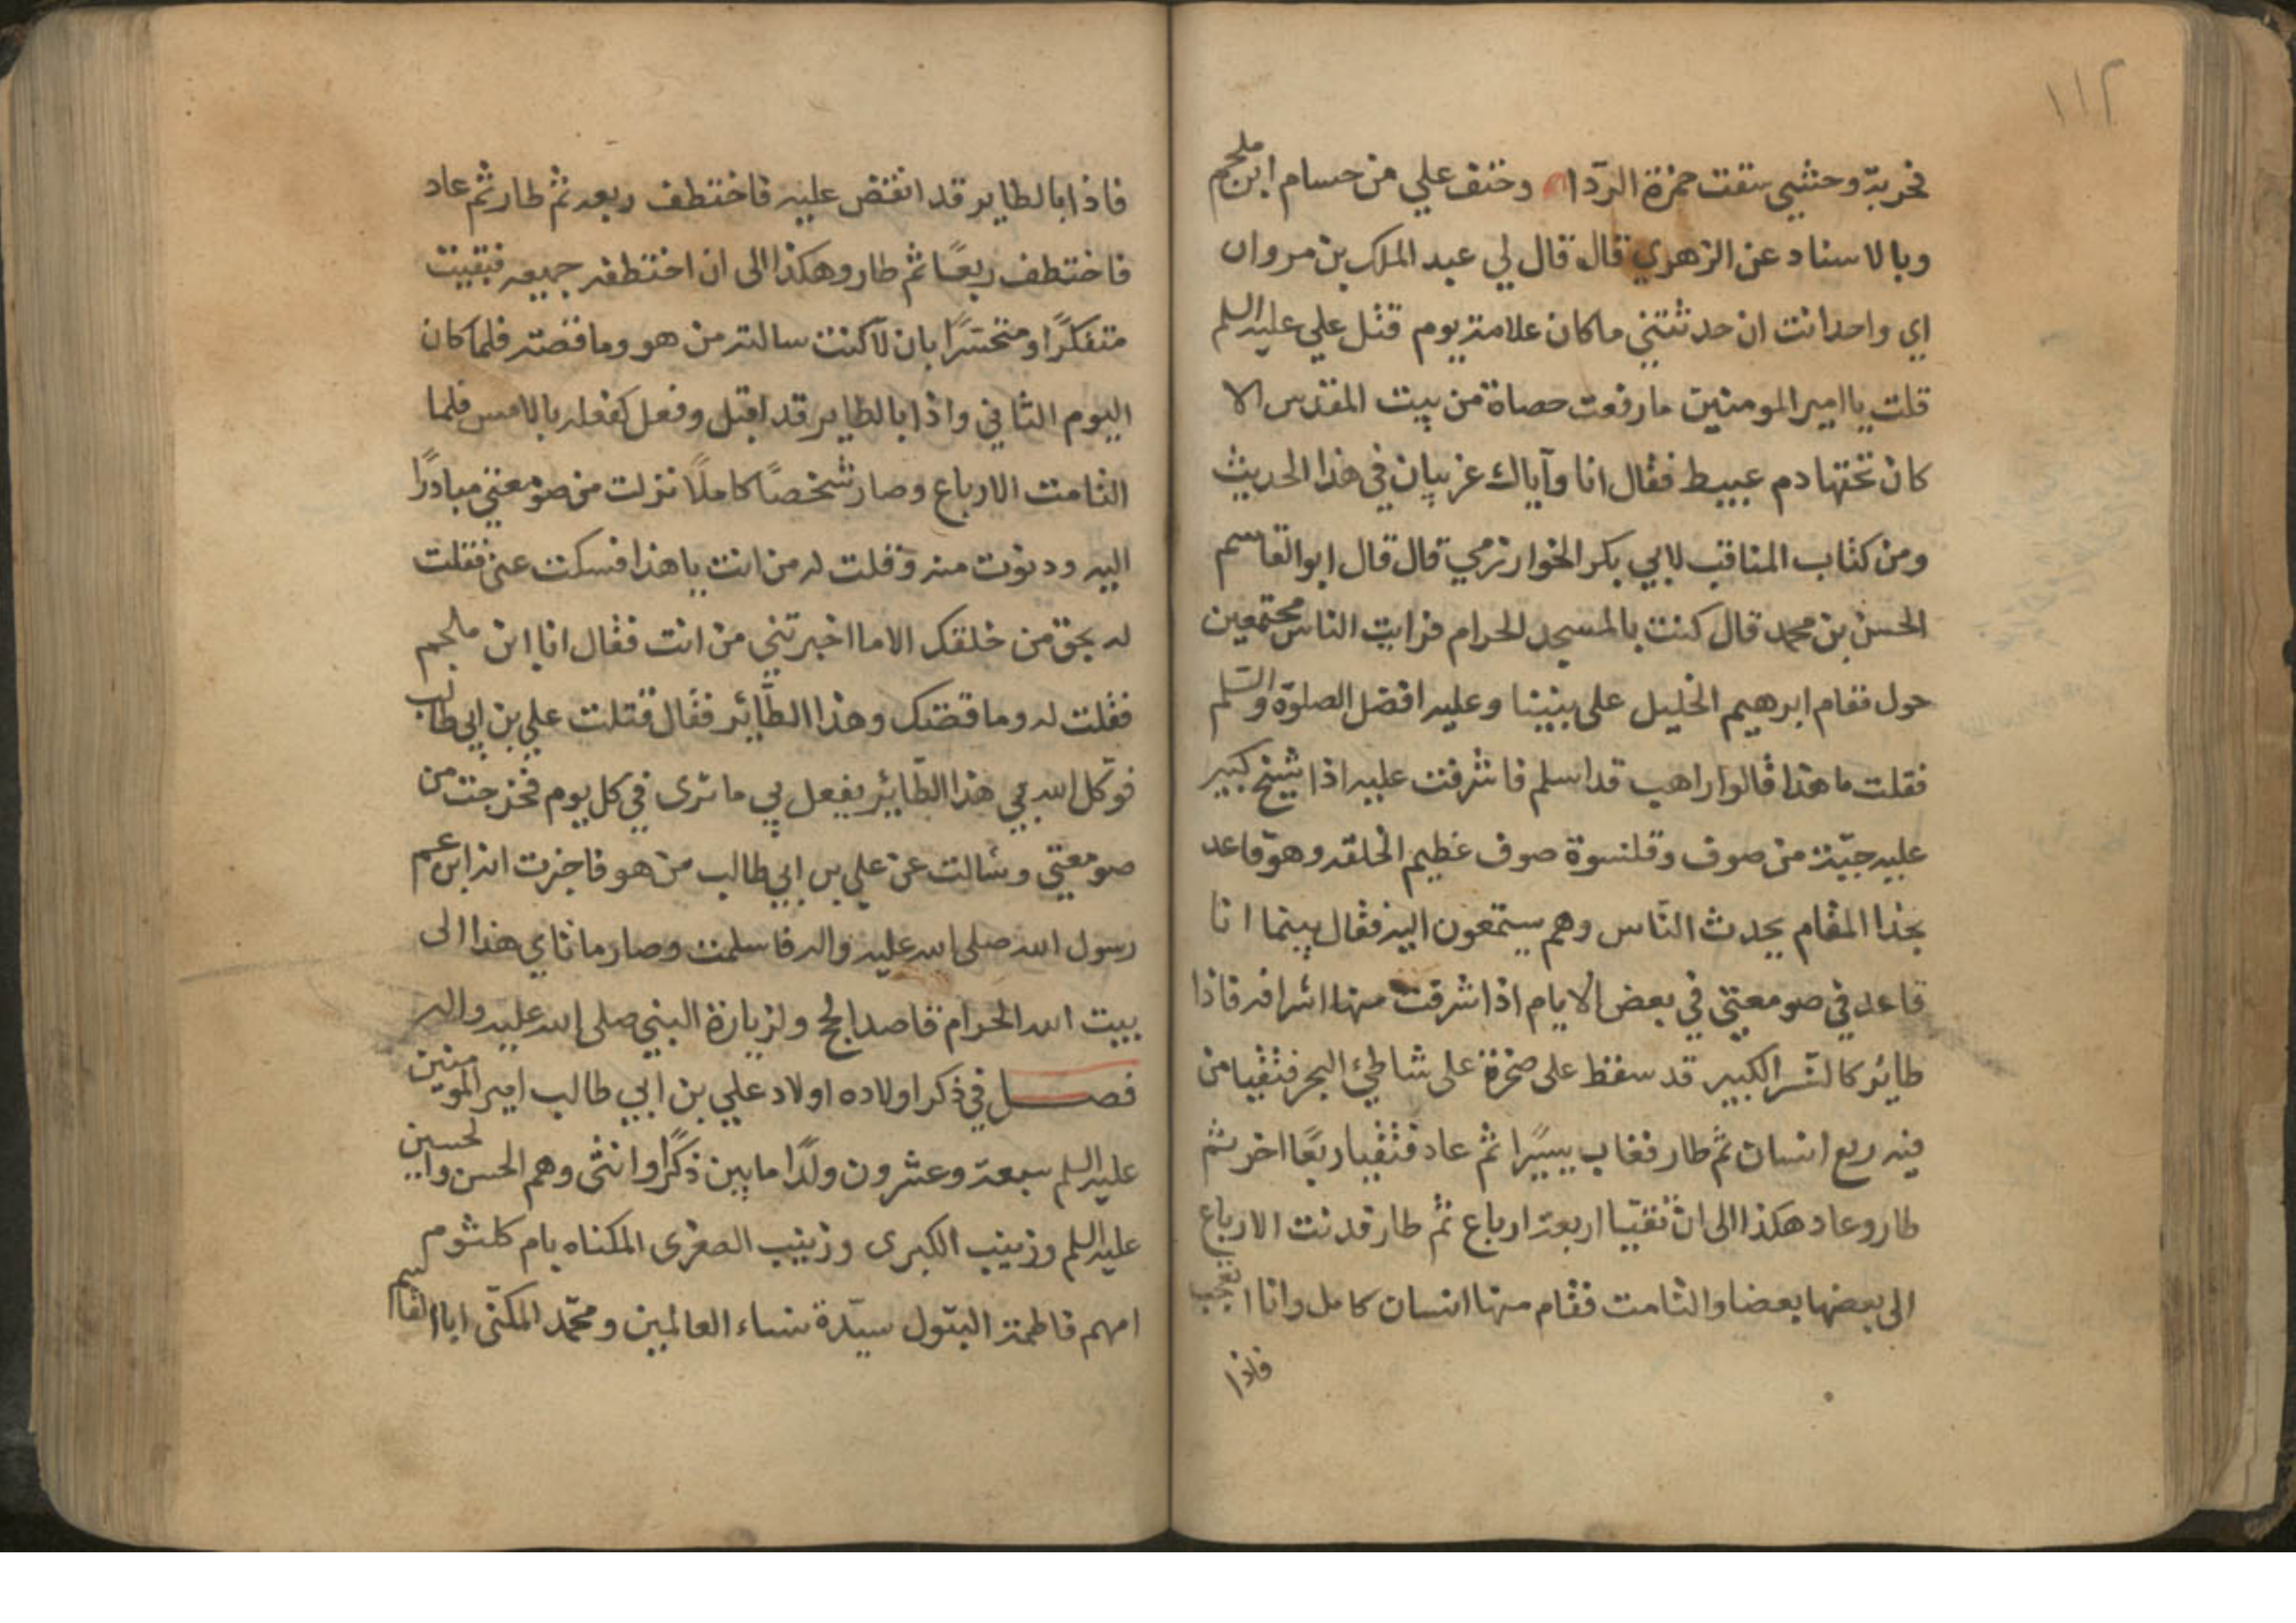 ١١٢
فحربة وحشي سقت حمزة الردا وحتف علي من حسام ابن ملجم
وبالاسناد عن الزهري قال قال لي عبد الملك بن مروان
اي واحد انت ان حدثتني ما كان علامة يوم قتل علي عليه السلم
قلت يا امير المومنين ما رفعت حصاة من بيت المقدس الا
كان تحتها دم عبيط فقال انا واياك غريبان في هذا الحديث
ومن كتاب المناقب لابي بكر الخوارزمي قال قال ابو القاسم
الحسن بن محمد قال كنت بالمسجد الحرام فرايت الناس مجتمعين
حول مقام ابرهيم الخليل على نبينا وعليه افضل الصلوة والسلم
فقلت ما هذا قالوا راهب قد اسلم فاشرفت عليه اذا شيخ كبير
عليه جبة من صوف وقلنسوة صوف عظيم الخلقه وهو قاعد
بحذا المقام يحدث الناس وهم يستمعون اليه فقال بينما انا
قاعد في صومعتي في بعض الايام اذا شرفت منها اشرافه فاذا
طائر كالنسر الكبير قد سقط على صخرة على شاطئ البحر فتقيا من
فيه ربع انسان ثم طار فغاب يسيرا ثم عاد فتقيا ربعا اخر ثم
طار وعاد هكذا الى ان تقيا اربعة ارباع ثم طار فدنت الارباع
الى بعضها بعضا والتامت فقام منها انسان كامل وانا اتعجب
فاذا
فاذا بالطاير قد انقض عليه فاختطف ربعه ثم طار ثم عاد
فاختطف ربعًا ثم طار وهكذا الى ان اختطفه جميعه فبقيت
متفكرًا ومتحسرًا بان لا كنت سالته من هو وما قصته فلما كان
اليوم الثاني واذا بالطاير قد اقبل وفعل كفعله بالامس فلما
التامت الارباع وصار شخصًا كاملًا نزلت من صومعتي مبادرًا
اليه ودنوت منه وقلت له من انت يا هذا فسكت عني فقلت
له بحق من خلقك الا ما اخبرتني من انت فقال انا ابن ملجم
فقلت له وما قصتك وهذا الطائر فقال قتلت علي بن ابي طالب
فوكل الله بي هذا الطائر يفعل بي ما ترى في كل يوم فخرجت من
صومعتي وسالت عن علي بن ابي طالب من هو فاخبرت انه ابن عم
رسول الله صلى الله عليه واله فاسلمت وصار ماتاي هذا الى
بيت الله الحرام قاصد الحج ولزيارة النبي صلى الله عليه واله
فصل في ذكر اولاده اولاد علي بن ابي طالب امير المومنين
عليه السلم سبعة وعشرون ولدًا ما بين ذكرًا وانثى وهم الحسن والحسين
عليه السلم وزينب الكبرى وزينب الصغرى المكناه بام كلثوم
امهم فاطمة البتول سيدة نساء العالمين ومحمد المكنى ابا القاسم